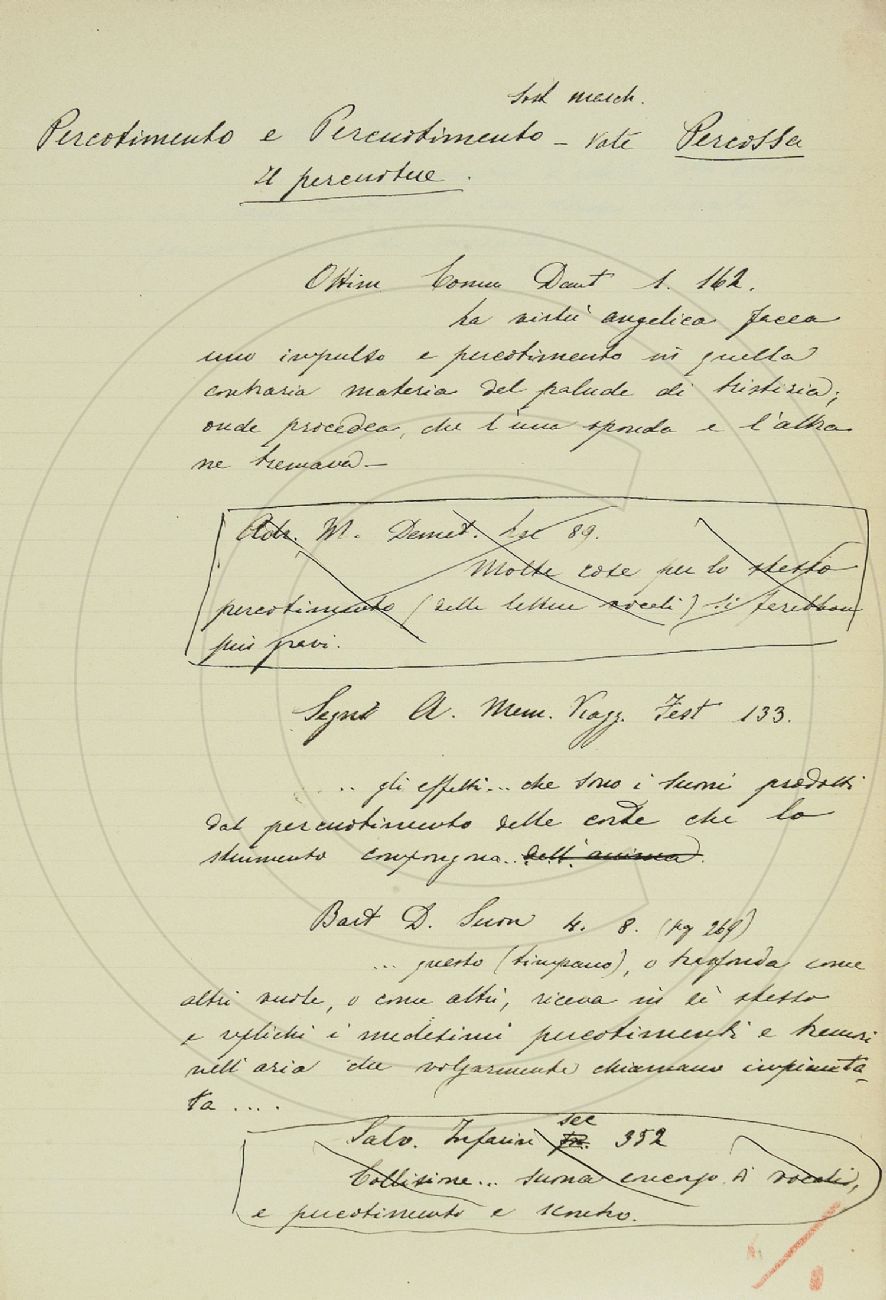 Sost masch.
Percotimento e Percuotimento – Vale Percossa
Il percuotere.
Ottim Comm Dant 1. 162.
La virtù angelica facea
uno impulso e percotimento in quella
contraria materia del palude di tristizia;
onde procedea, che l'una sponda e l'altra
ne tremava –
Adr. M. Demet. 89.
Molte cose per lo stesso
percotimento (delle lettere vocali) si farebbon
più gravi.
Segni A. Mem. Viagg. Fest 133.
... gli effetti... che sono i suoni prodotti
dal percuotimento delle corde che lo
strumento compongono... dell'anima.
Bart D. Suon 4. 8. (pag 269)
... questo (timpano), o trasfonda come
altri vuole, o come altri, riceva in sè stesso
e replichi i medesimi percotimenti e tremori
nell'aria che volgarmente chiamano impianta-
ta ....
Salv. Infarin sec 352
Collisione... suona concorso di vocali,
e percotimento e scontro.